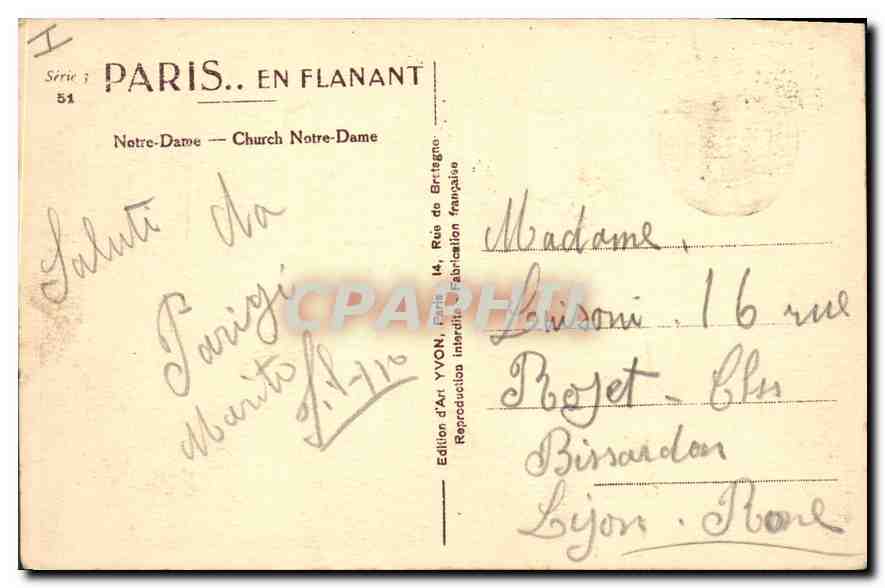 I
Série 3
51
PARIS.. EN FLANANT
Notre-Dame — Church Notre-Dame
Saluti da
Parigi
Marito
Edition d'Art YVON, Paris 14, Rue de Bretagne
Reproduction interdite - Fabrication française
CPAPHIL
Madame,
Luisoni . 16 rue
Rojet - Clos
Bissardon
Lijon . Rone